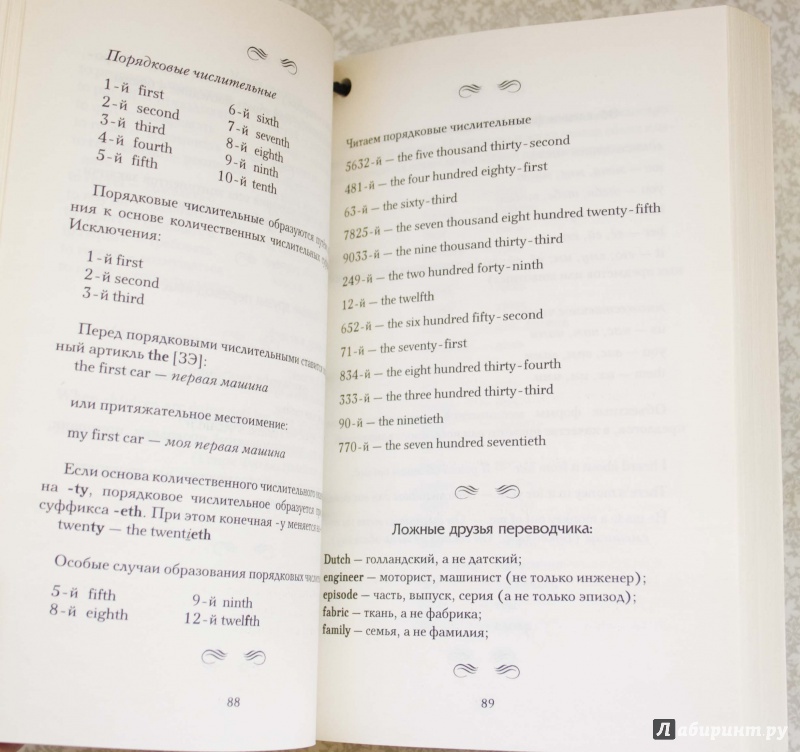 Порядковые числительные
1-й first
2-й second
3-й third
4-й fourth
5-й fifth
6-й sixth
7-й seventh
8-й eighth
9-й ninth
10-й tenth
Порядковые числительные образуются
ния к основе количественных числительных
Исключения:
1-й first
2-й second
3-й third
Перед порядковыми числительными ставится
ный артикль the [ЗЭ]:
the first car — первая машина
или притяжательное местоимение:
my first car — моя первая машина
Если основа количественного числительного
на -ty, порядковое числительное образуется
суффикса -eth. При этом конечная -y меняется
twenty — the twentieth
Особые случаи образования порядковых
5-й fifth
8-й eighth
9-й ninth
12-й twelfth
88
Читаем порядковые числительные
5632-й — the five thousand thirty-second
481-й — the four hundred eighty-first
63-й — the sixty-third
7825-й — the seven thousand eight hundred twenty-fifth
9033-й — the nine thousand thirty-third
249-й — the two hundred forty-ninth
12-й — the twelfth
652-й — the six hundred fifty-second
71-й — the seventy-first
834-й — the eight hundred thirty-fourth
333-й — the three hundred thirty-third
90-й — the ninetieth
770-й — the seven hundred seventieth
Ложные друзья переводчика:
Dutch — голландский, а не датский;
engineer — моторист, машинист (не только инженер);
episode — часть, выпуск, серия (а не только эпизод);
fabric — ткань, а не фабрика;
family — семья, а не фамилия;
89
Лабиринт.ру